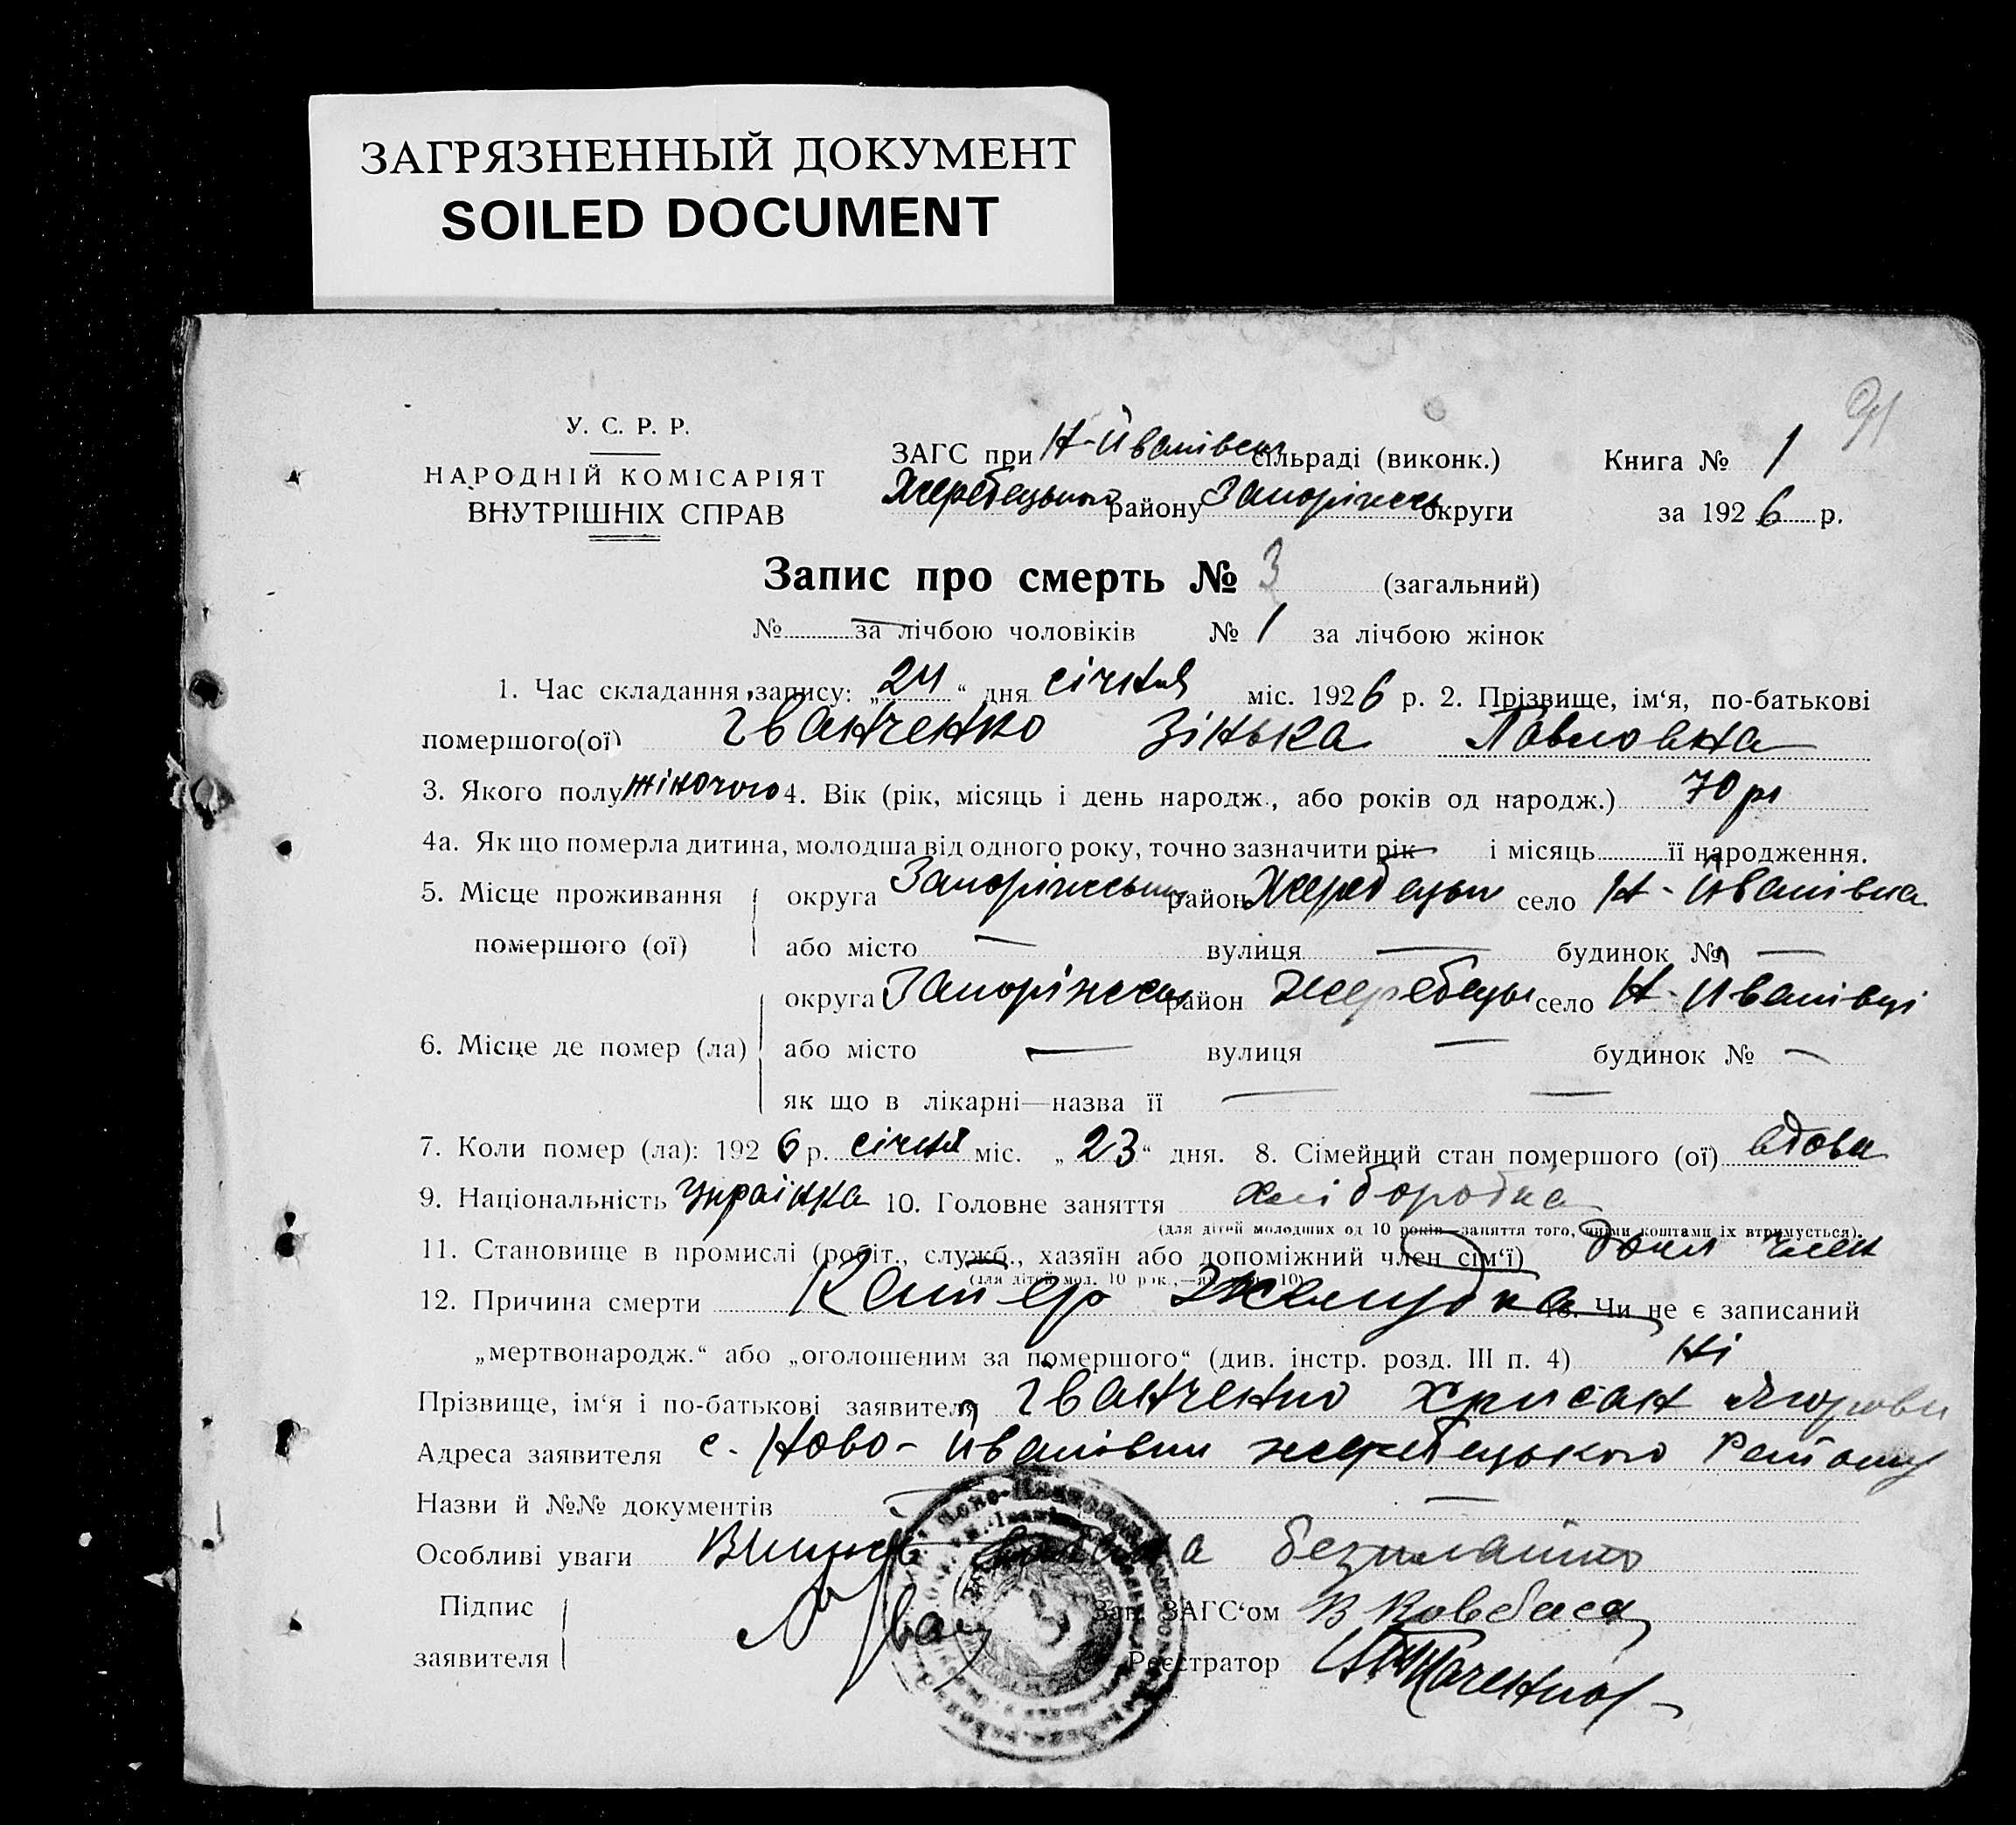 ЗАГРЯЗНЕННЫЙ ДОКУМЕНТ
SOILED DOCUMENT
У. С. Р. Р.
НАРОДНІЙ КОМІСАРІЯТ
ВНУТРІШНІХ СПРАВ
ЗАГС при Н-Иванівськ сільраді (виконк.) Книга № 1
Жеребецького району Запоріжськ округи за 1926 р.
Запис про смерть № 3 (загальний)
№ — за лічбою чоловіків № 1 за лічбою жінок
1. Час складання запису: „24“ дня січня міс. 1926 р. 2. Прізвище, ім‘я, по-батькові
помершого(ої) Іванченко Зінька Павловна
3. Якого полу жіночого 4. Вік (рік, місяць і день народж., або років од народж.) 70 р
4а. Як що померла дитина, молодша від одного року, точно зазначити рік — і місяць її народження.
5. Місце проживання помершого (ої) округа Запоріжська район Жеребецьк село Н-Иванівка
або місто — вулиця — будинок № —
6. Місце де помер (ла) округа Запоріжськ район Жеребецьк село Н-Иванівці
або місто — вулиця — будинок № —
як що в лікарні—назва її — —
7. Коли помер (ла): 1926 р. січня міс. „23“ дня. 8. Сімейний стан помершого (ої) вдова
9. Національність Українка 10. Головне заняття хліборобка
(для дітей молодших од 10 років—заняття того, чиїми коштами їх втримується).
11. Становище в промислі (робіт., служб., хазяїн або допоміжний член сім‘ї) доп член
(для дітей мол. 10 рок.,—як 10)
12. Причина смерти Канцер Желудка 13. Чи не є записаний
„мертвонародж.“ або „оголошеним за помершого“ (див. інстр. розд. III п. 4) Ні
Прізвище, ім‘я і по-батькові заявителя Іванченко Хрисан
Адреса заявителя с. Ново-Иванівки жеребецького Району
Назви й №№ документів — —
Особливі уваги безплатно
Підпис заявителя Зав. ЗАГС‘ом В Ковбаса
Реєстратор